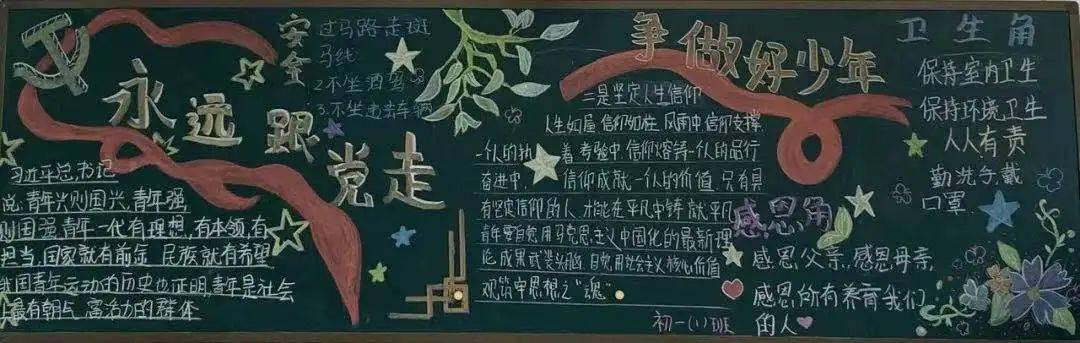 永远跟党走
习近平总书记
说:青年兴则国兴,青年强
则国强,青年一代有理想,有本领,有
担当,国家就有前途,民族就有希望
我国青年运动的历史也证明,青年是社会
上最有朝气,富活力的群体
安全
1.过马路走斑
马线
2.不坐酒驾
3.不坐超法车辆
争做好少年
二是坚定人生信仰
人生如屋,信仰如柱,风雨中信仰支撑
一个人的执着,考验中,信仰熔铸一个人的品行
奋进中,信仰成就一个人的价值,只有具
有坚定信仰的人,才能在平凡中铸就平凡
青年要自觉用马克思主义中国化的最新理
论成果武装头脑,自觉用社会主义核心价值
观筑牢思想之“魂”
初一(1)班
卫生角
保持室内卫生
保持环境卫生
人人有责
勤洗手戴
口罩
感恩角
感恩父亲,感恩母亲,
感恩所有养育我们
的人